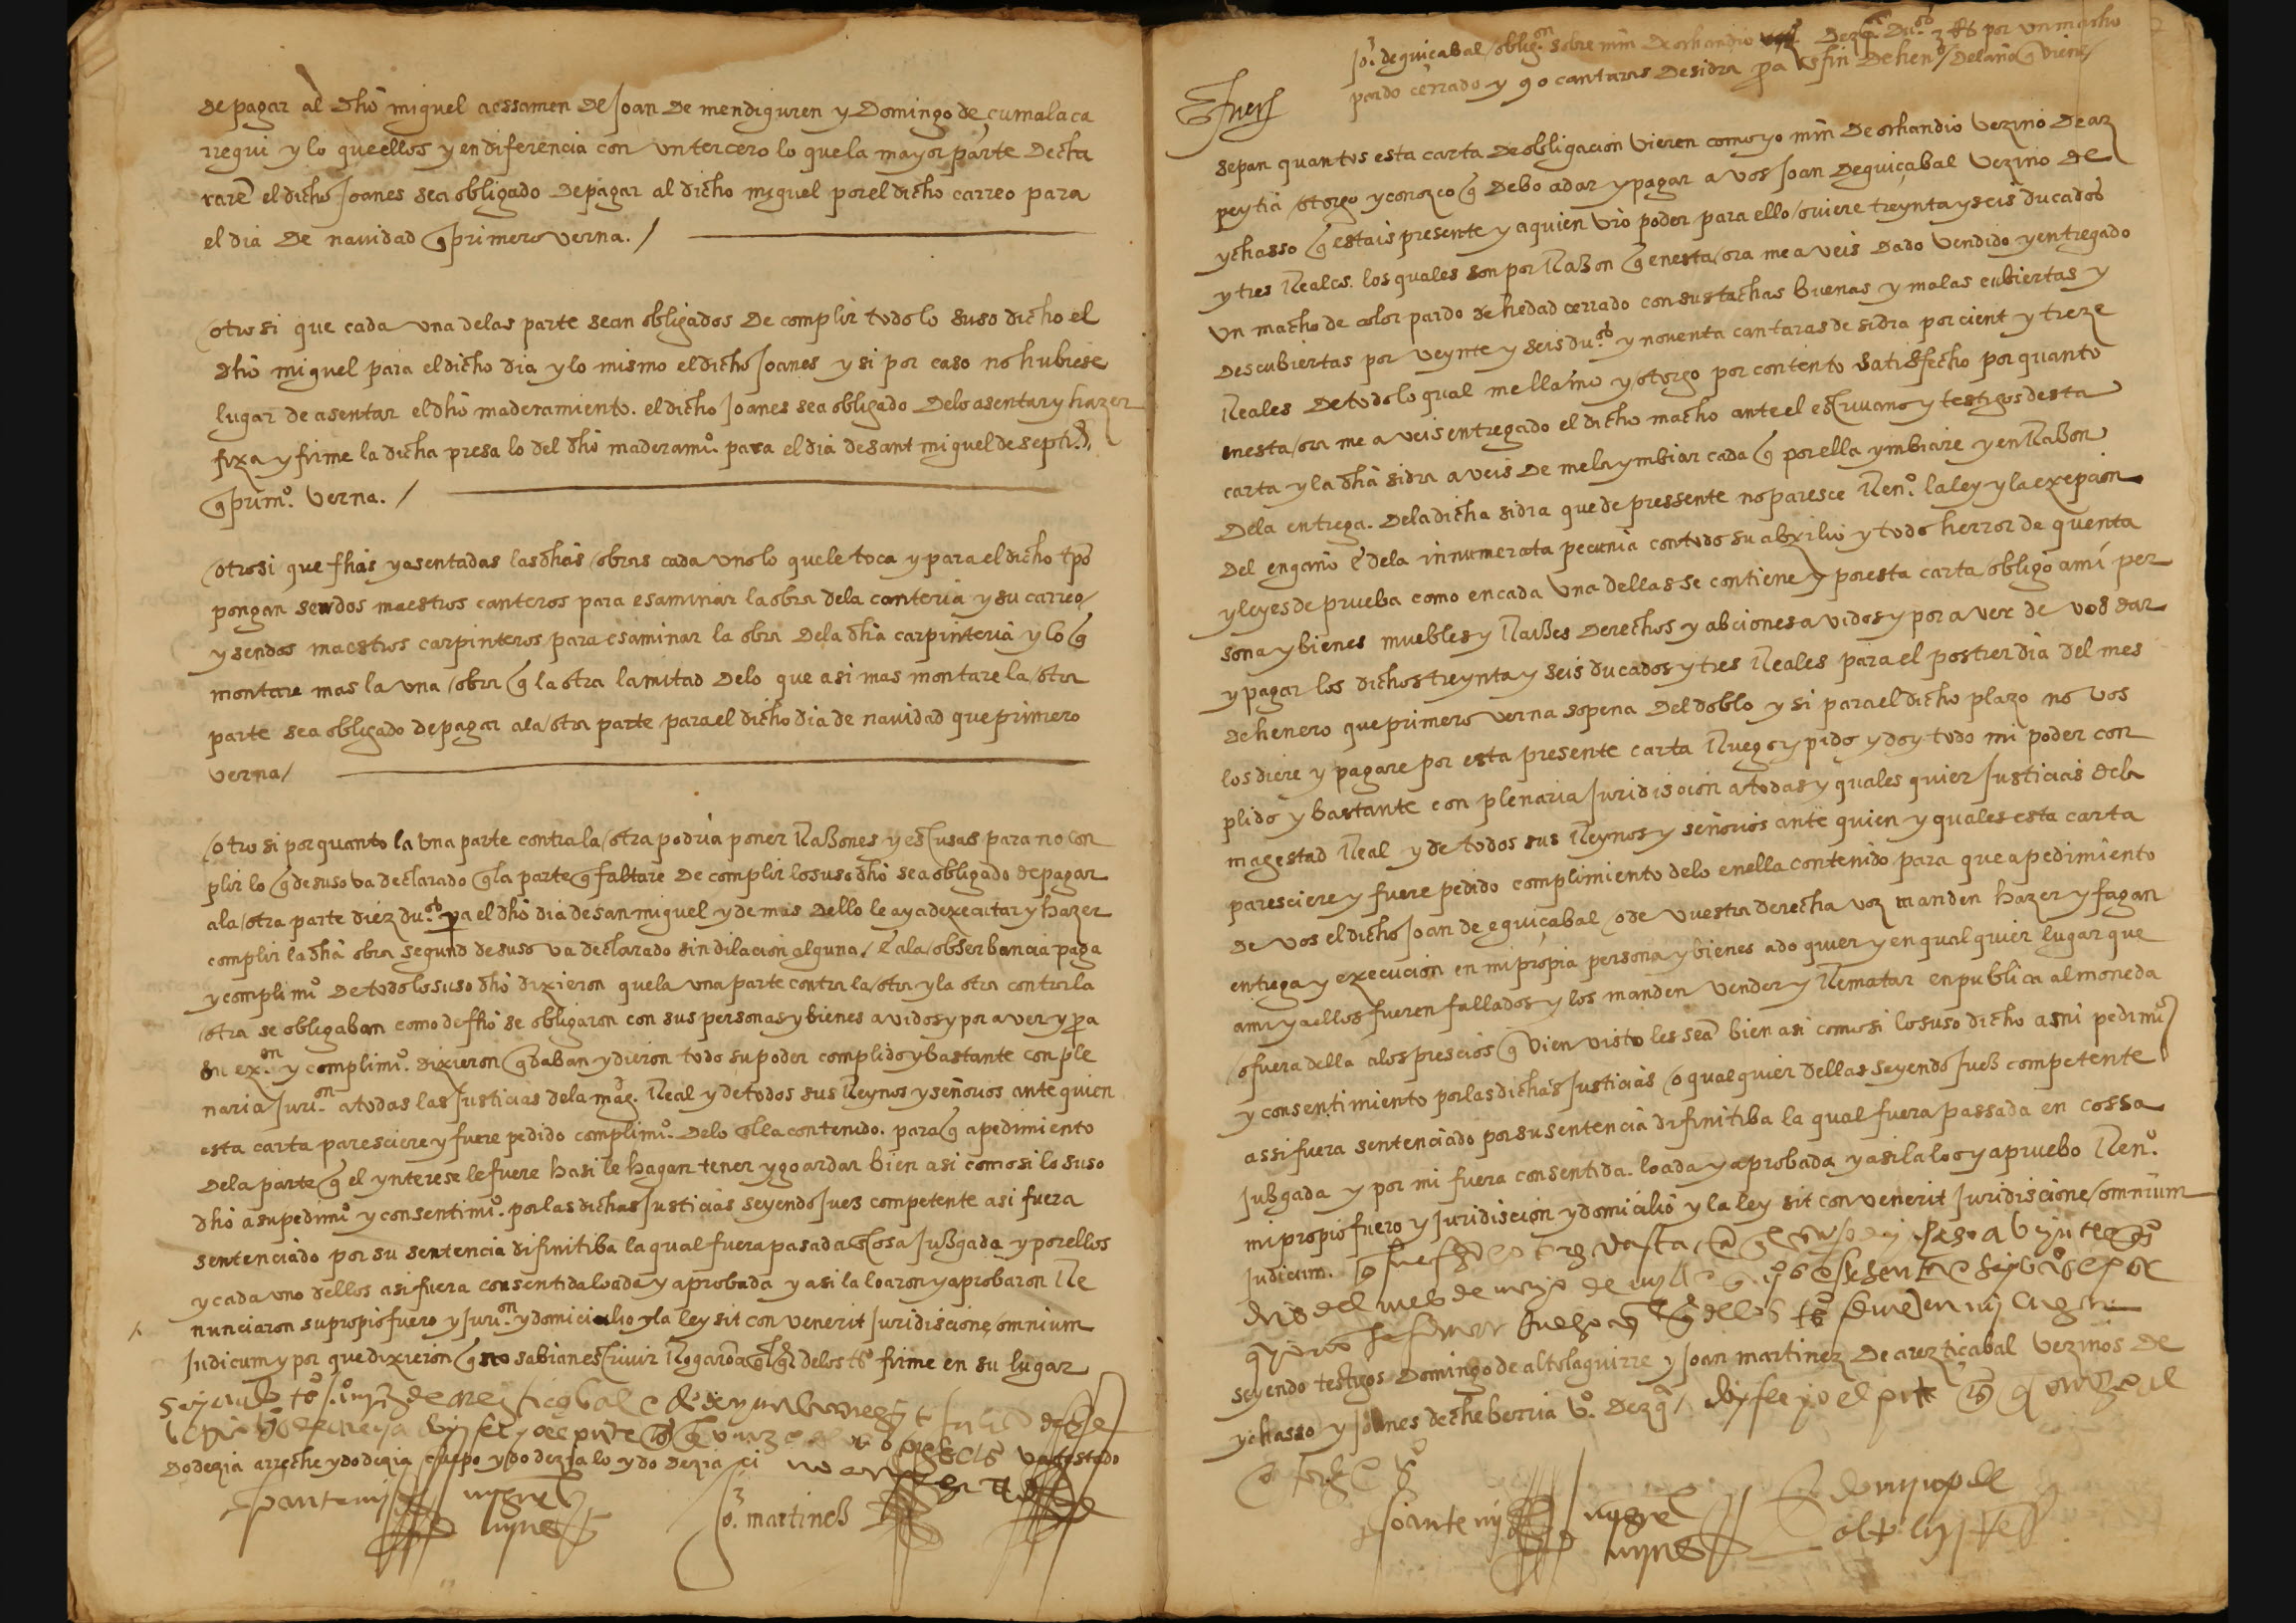 de pagar al dho miguel a essamen de Joan de mendiguren y Domingo de çumalaca
rregui y lo que ellos y en diferencia con un tercero lo que la mayor parte decla
rare el dicho Joanes sea obligado de pagar al dicho miguel por el dicho carreo para
el dia de navidad q primero verna. /
otro si que cada una de las parte sean obligados de complir todo lo suso dicho el
dho miguel para el dicho dia y lo mismo el dicho Joanes y si por caso no hubiese
lugar de asentar el dho maderamiento. el dicho Joanes sea obligado de lo asentar y hazer
fixa y firme la dicha presa lo del dho maderamio. para el dia de sant miguel de septi.e
q primo. verna. /
otro si que fhas y asentadas las dhas obras cada uno lo que le toca y para el dicho tpo
pongan sendos maestros canteros para esaminar la obra de la canteria y su carreo
y sendos maestros carpinteros para esaminar la obra de la dha carpinteria y lo q
montare mas la una obra q la otra la mitad de lo que asi mas montare la otra
parte sea obligado de pagar a la otra parte para el dicho dia de navidad que primero
verna /
otro si por quanto la una parte contra la otra podria poner Razones y escusas para no con
plir lo q de suso va declarado q la parte q faltare de complir lo suso dho sea obligado de pagar
a la otra parte diez du.os pa el dho dia de san miguel y demas dello le aya de xecutar y hazer
complir la dha obra segund de suso va declarado sin dilacion alguna / E a la obserbancia paga
y complimio de todo lo suso dho dixieron que la una parte contra la otra y la otra contra la
otra se obligaban como de fho se obligaron con sus personas y bienes avidos y por aver y pa
su ex.on y complimio. dixieron q daban y dieron todo su poder complido y bastante con ple
naria Juri.on a todas las Justicias de la mag.d Real y de todos sus Reynos y señorios ante quien
esta carta paresciere y fuere pedido complimio. de lo en ella contenido. para q a pedimiento
de la parte q el ynterese le fuere hasi le hagan tener y goardar bien asi como si lo suso
dho a su pedimio y consentimio. por las dichas Justicias seyendo Juez competente asi fuera
sentenciado por su sentencia difinitiba la qual fuera pasada en cosa Juzgada y por ellos
y cada uno dellos asi fuera consentida loada y aprobada y asi la loaron y aprobaron Re
nunciaron su propio fuero y Juri.on y domicialio y la ley sit convenerit Juridiscione omnium
Judicum y por que dixieron q no sabian escrivir Rogaron a qlqr de los tos firme en su lugar
Jo. martinez
Jo. de guiçabal / oblig.on sobre min de ochandio
pardo cerrado y 90 cantaras de sidra pa en fin de hen.o / del año q viene /
sepan quantos esta carta de obligacion vieren como yo min de ochandio vezino de az
peytia / otorgo y conozco q debo a dar y pagar a vos Joan de guiçabal vezino de
ychasso q estais presente y a quien vro poder para ello / oviere treynta y seis ducados
y tres Reales. los quales son por Razon q en esta / ora me aveis dado vendido y entregado
un macho de color pardo de hedad cerrado con sus tachas buenas y malas cubiertas y
descubiertas por veynte y seis du.os y noventa cantaras de sidra por cient y treze
Reales de todo lo qual me llamo y / otorgo por contento satisfecho por quanto
enesta / ora me aveis entregado el dicho macho ante el escrivano y testigos desta
carta y la dha sidra aveis de me la ymbiar cada q por ella ymbiare y en Razon
de la entrega. de la dicha sidra que de pressente no paresce Ren.o la ley y la exepcion
del engaño E de la innumerata pecunia con todo su abxilio y todo herror de quenta
y leyes de prueba como en cada una dellas se contiene y por esta carta / obligo a mi per
sona y bienes muebles y Raizes derechos y abciones avidos y por aver de vos dar
y pagar los dichos treynta y seis ducados y tres Reales para el postrer dia del mes
de henero que primero verna sopena del doblo y si para el dicho plazo no vos
los diere y pagare por esta presente carta Ruego y pido y doy todo mi poder con
plido y bastante con plenaria Juridiscion a todas y quales quier Justicias de la
magestad Real y de todos sus Reynos y señorios ante quien y quales esta carta
paresciere y fuere pedido complimiento de lo en ella contenido para que a pedimiento
de vos el dicho Joan de eguiçabal / o de vuestra derecha voz manden hazer y fagan
entrega y execucion en mi propia persona y bienes ado quier y en qual quier lugar que
a mi y a ellos fueren fallados y los manden vender y Rematar en publica almoneda
/ o fuera della a los prescios q vien visto les sea bien asi como si lo suso dicho a mi pedimio
y consentimiento por las dichas Justicias / o qual quier dellas seyendo Juez competente
assi fuera sentenciado por su sentencia difinitiba la qual fuera passada en cossa
Juzgada y por mi fuera consentida. loada y aprobada y asi la loo y apruebo Ren.o
mi propio fuero y Juridiscion y domicilio y la ley sit convenerit Juridiscione / omnium
Judicum.
seyendo testigos Domingo de altolaguirre y Joan martinez de areztiçabal vezinos de
ychasso y Joanes de echeberria v.o de